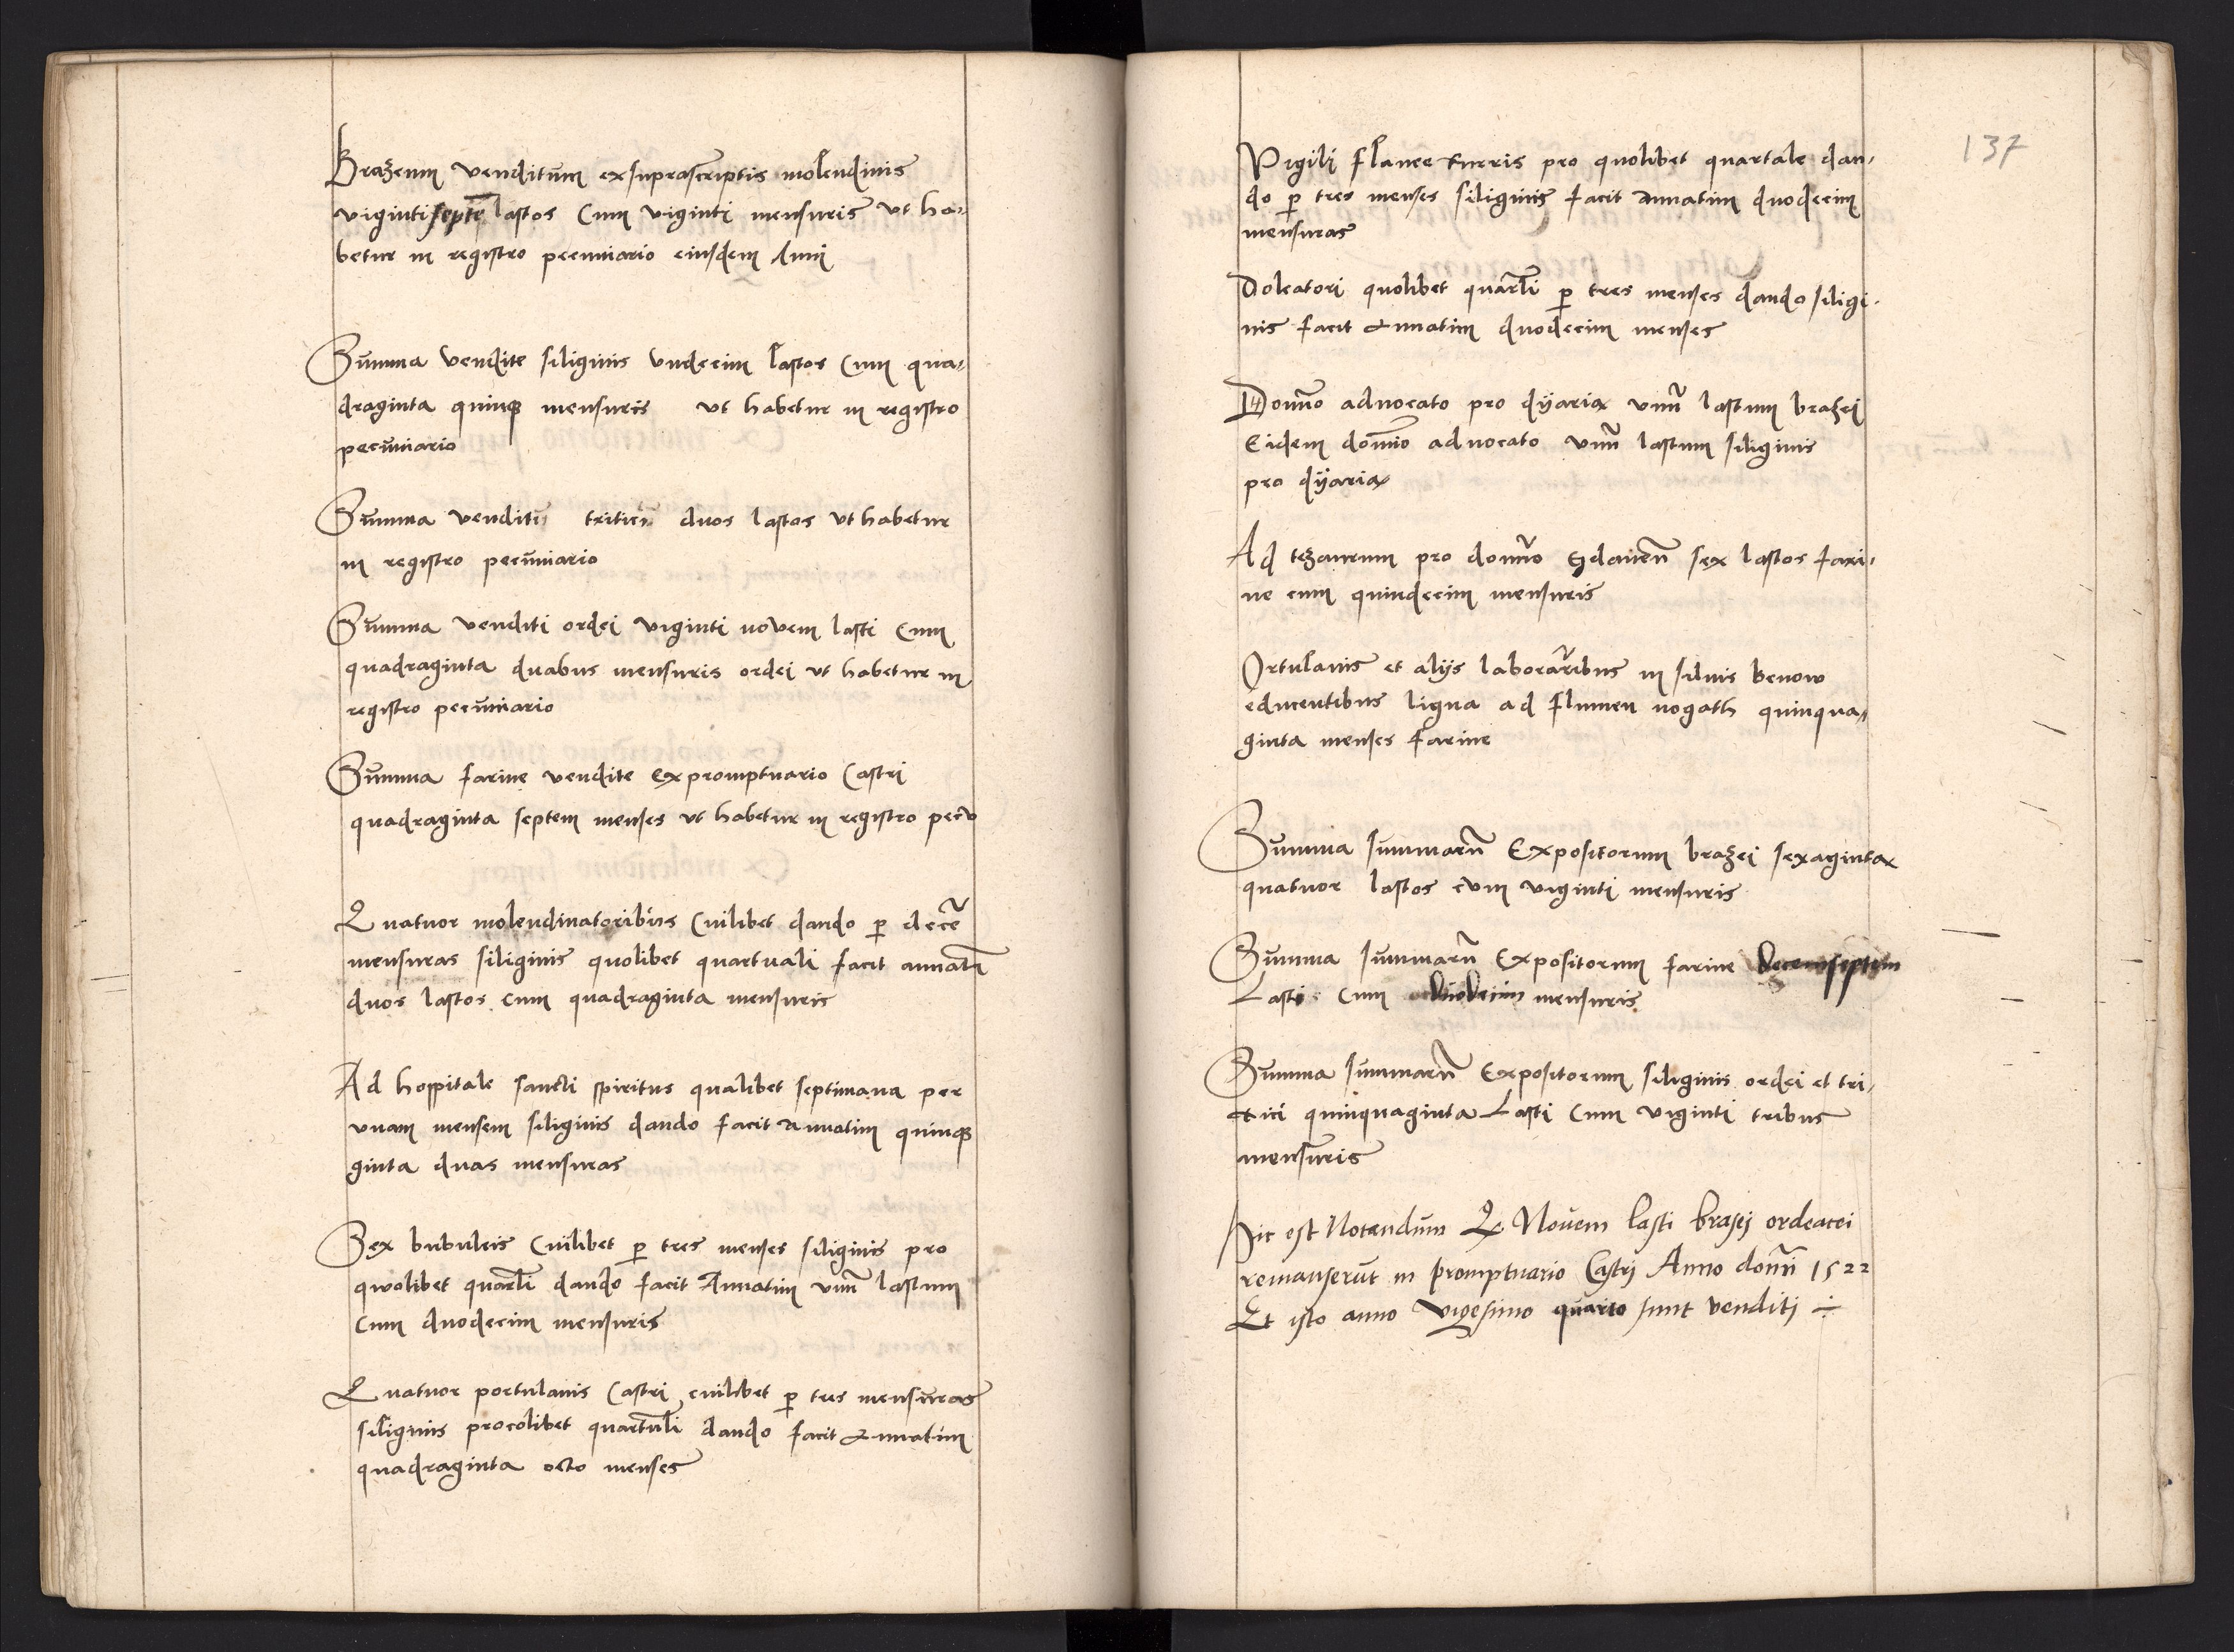 Brazeum venditum ex suprascriptis molendinis
viginti septe lastos Cum viginti mensuris vt ha-
betur in registro pecuniario eiusdem Anni
Summa vendite siliginis vndecim lastos Cum qua-
draginta quinq mensuris vt habetur in registro
pecuniario
Summa venditi tritici duos lastos vt habetur
in registro pecuniario
Summa venditi ordei viginti novem lasti Cum
quadraginta duabus mensuris ordei vt habetur in
registro pecuniario
Summa farine vendite ex promptuario Castri
quadraginta septem menses vt habetur in registro pecu
Quatuor molendinatoribus Cuilibet dando p dece
mensuras siliginis quolibet quartuali facit annati
duos lastos cum quadraginta mensuris
Ad hospitale sancti spiritus qualibet septimana per
vnam mensem siliginis dando facit annatim quinq
ginta duas mensuras
Sex bubulcis Cuilibet p tres menses siliginis pro
qwolibet quartli dando facit Annatim vnu lastum
Cum duodecim mensuris
Quatuor portulanis Castri cuilibet p tres mensuras
siliginis procolibet quartuli dando facit annatim
quadraginta octo menses
137
Vigili flanee turris pro quolibet quartale dan-
do p tres menses siliginis facit annatim duodecim
mensuras
Doleatori quolibet quartli p tres menses dando siligi-
nis facit annatim duodecim menses
Domno advocato pro dyaria vnu lastum brazei
Eidem domino advocato vnu lastum siliginis
pro dyaria
Ad tezaurum pro domno Gdanen sex lastos fari-
ne cum quindecim mensuris
Ortulanis et alijs laboraribus in silvis benow
educentibus ligna ad flumen nogath quinqua-
ginta menses farine
Summa summaru Expositorum brazei sexaginta
quatuor lastos cum viginti mensuris
Summa summaru Expositorum farine Decemseptem
Lasti Cum duodecim mensuris
Summa summaru Expositorum siliginis ordei et tri-
tici quinquaginta Lasti Cum viginti tribus
mensuris
Hic est Notandum Q Novem lasti brasej ordeacei
remanserut in promptuario Castrj Anno domni 1522
Et isto anno vigesimo quarto sunt venditi ÷